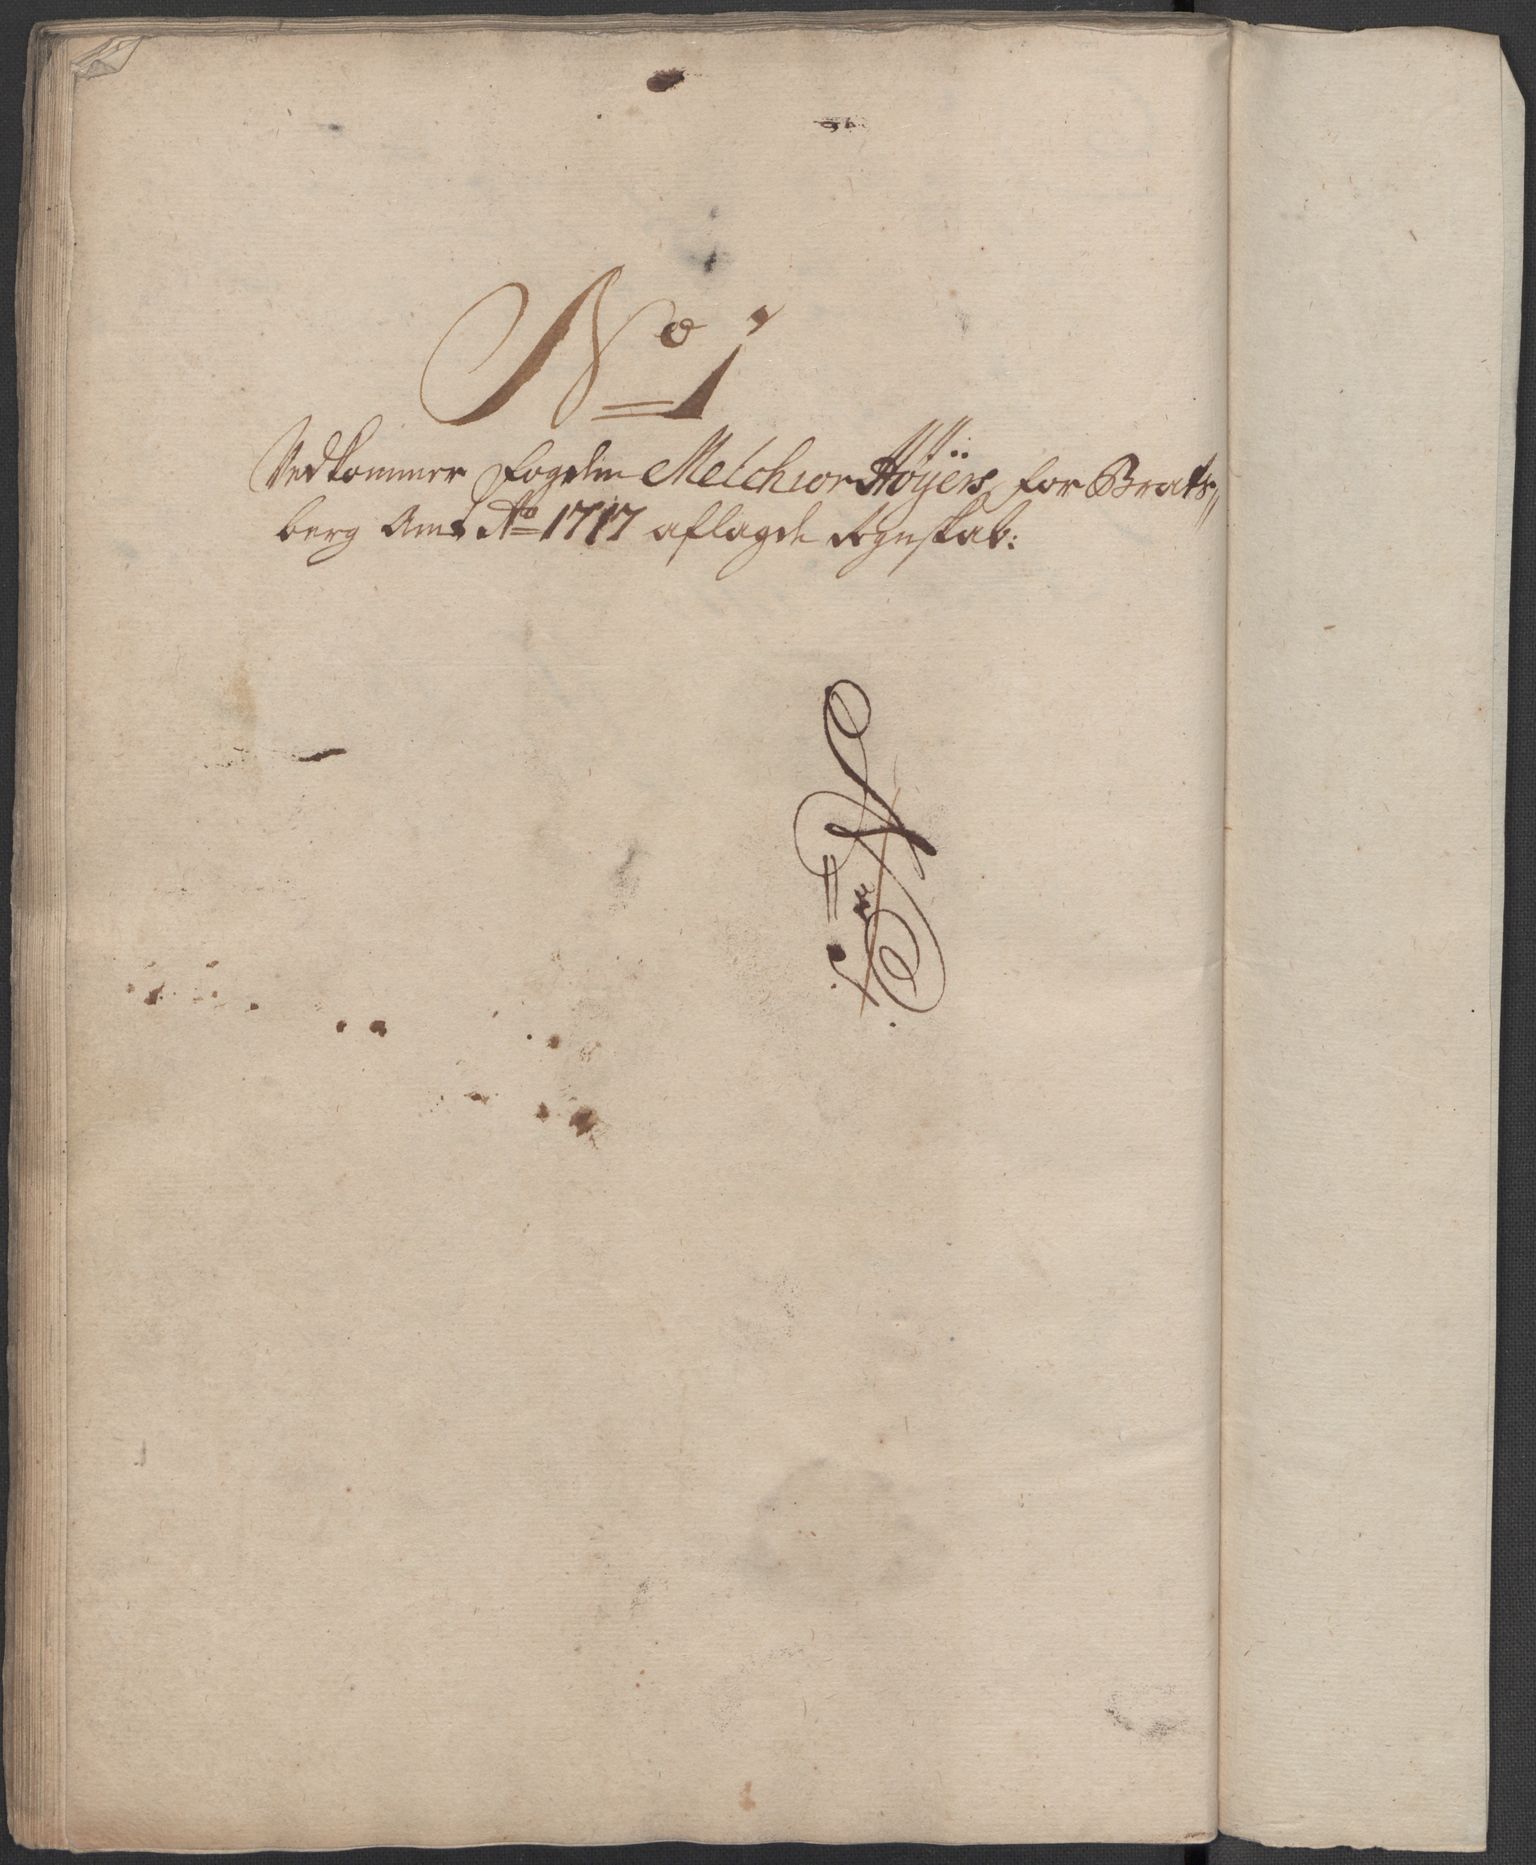 No 1
Vedkommer Fogden Melchior Höÿers for Brats„
berg Amt Ao 1717 aflagde Regnskab:
No